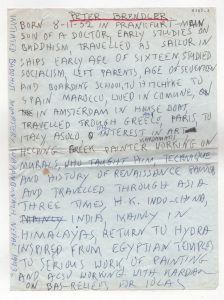 PETER BRENDLER
BORN 8-11-52 IN FRANKFURT-MAIN
SON OF A DOCTOR, EARLY STUDIES ON
BUDDHISM, TRAVELLED AS SAILOR IN
SHIPS EARLY AFE OF SIXTEEN STUDIED
SOCIALISM, LEFT PARENTS AGE OF SEVENTEEN
AND BOARDING SCHOOL, TO HITCHIKE TO
SPAIN MAROCCO, LIVED IN COMUNE, ON
IN AMSTERDAM ON HOUSE BOAT
TRAVELLED TROUGH GREECE, PARIS TO
ITALY INTEREST ART
GREEK PAINTER WORKING ON
MURALS, WHO TAUGHT HIM, TECHNIQUE
AND HISTORY OF RENAISSANCE
AND TRAVELLED THROUGH ASIA
THREE TIMES, H.K. INDO-CHINO,
INDIA, MAINLY IN
HIMALAYAS, RETURN TO HYDRA
INSPIRED FROM EGYPTIAN TEMPLES
TO SERIOUS WORK, OF PAINTING
AND ALSO WORKING WITH
ON BAS-RELIEFS FOR IOLAS